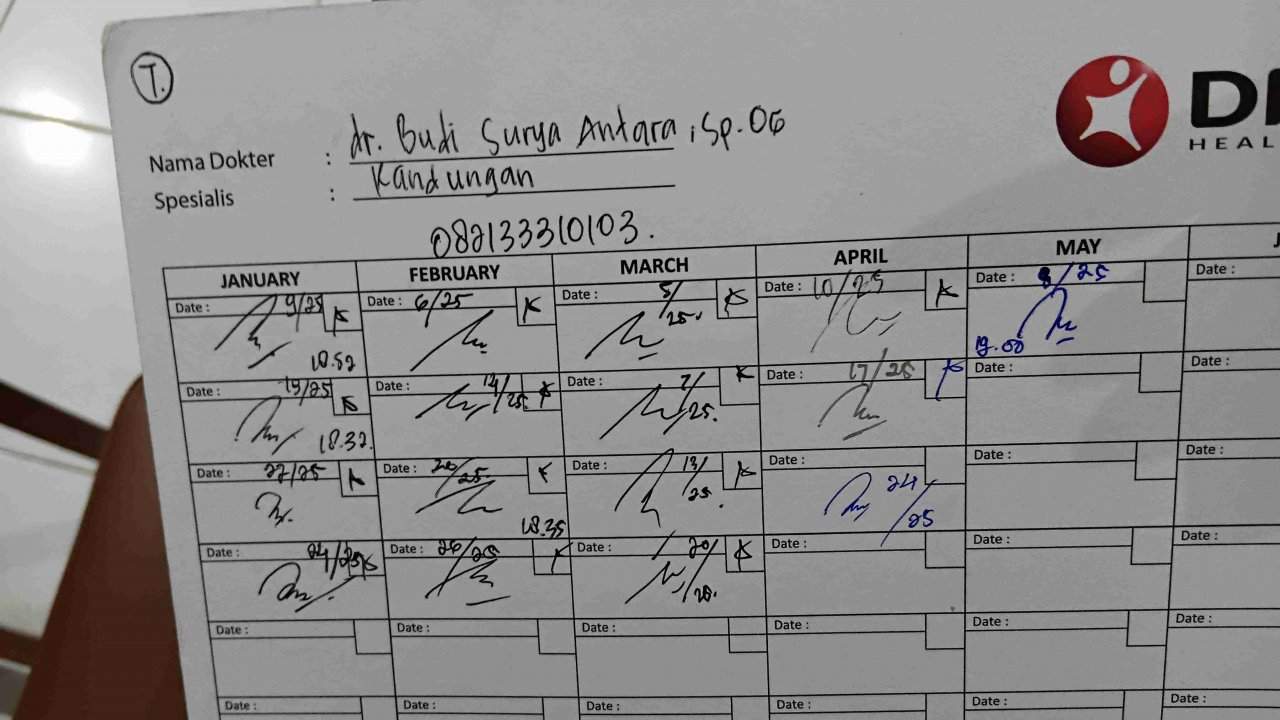 T.
DK
HEAL
Nama Dokter : dr. Budi Surya Antara, Sp.OG
Spesialis : Kandungan
082133310103.
JANUARY FEBRUARY MARCH APRIL MAY J
Date : 9/25 Date : 6/25 Date : 5/25. Date : 10/25 Date : 8/25 Date :
18.52 19.00
Date : 15/25 Date : 14/25 Date : 7/25. Date : 17/25 Date : Date :
18.32.
Date : 22/25 Date : 20/25 Date : 13/25. Date : 24/25 Date : Date :
18.35
Date : 24/25 Date : 26/25 Date : 20/20. Date : Date : Date :
Date : Date : Date : Date : Date : Date :
Date : Date : Date : Date : Date : Date :